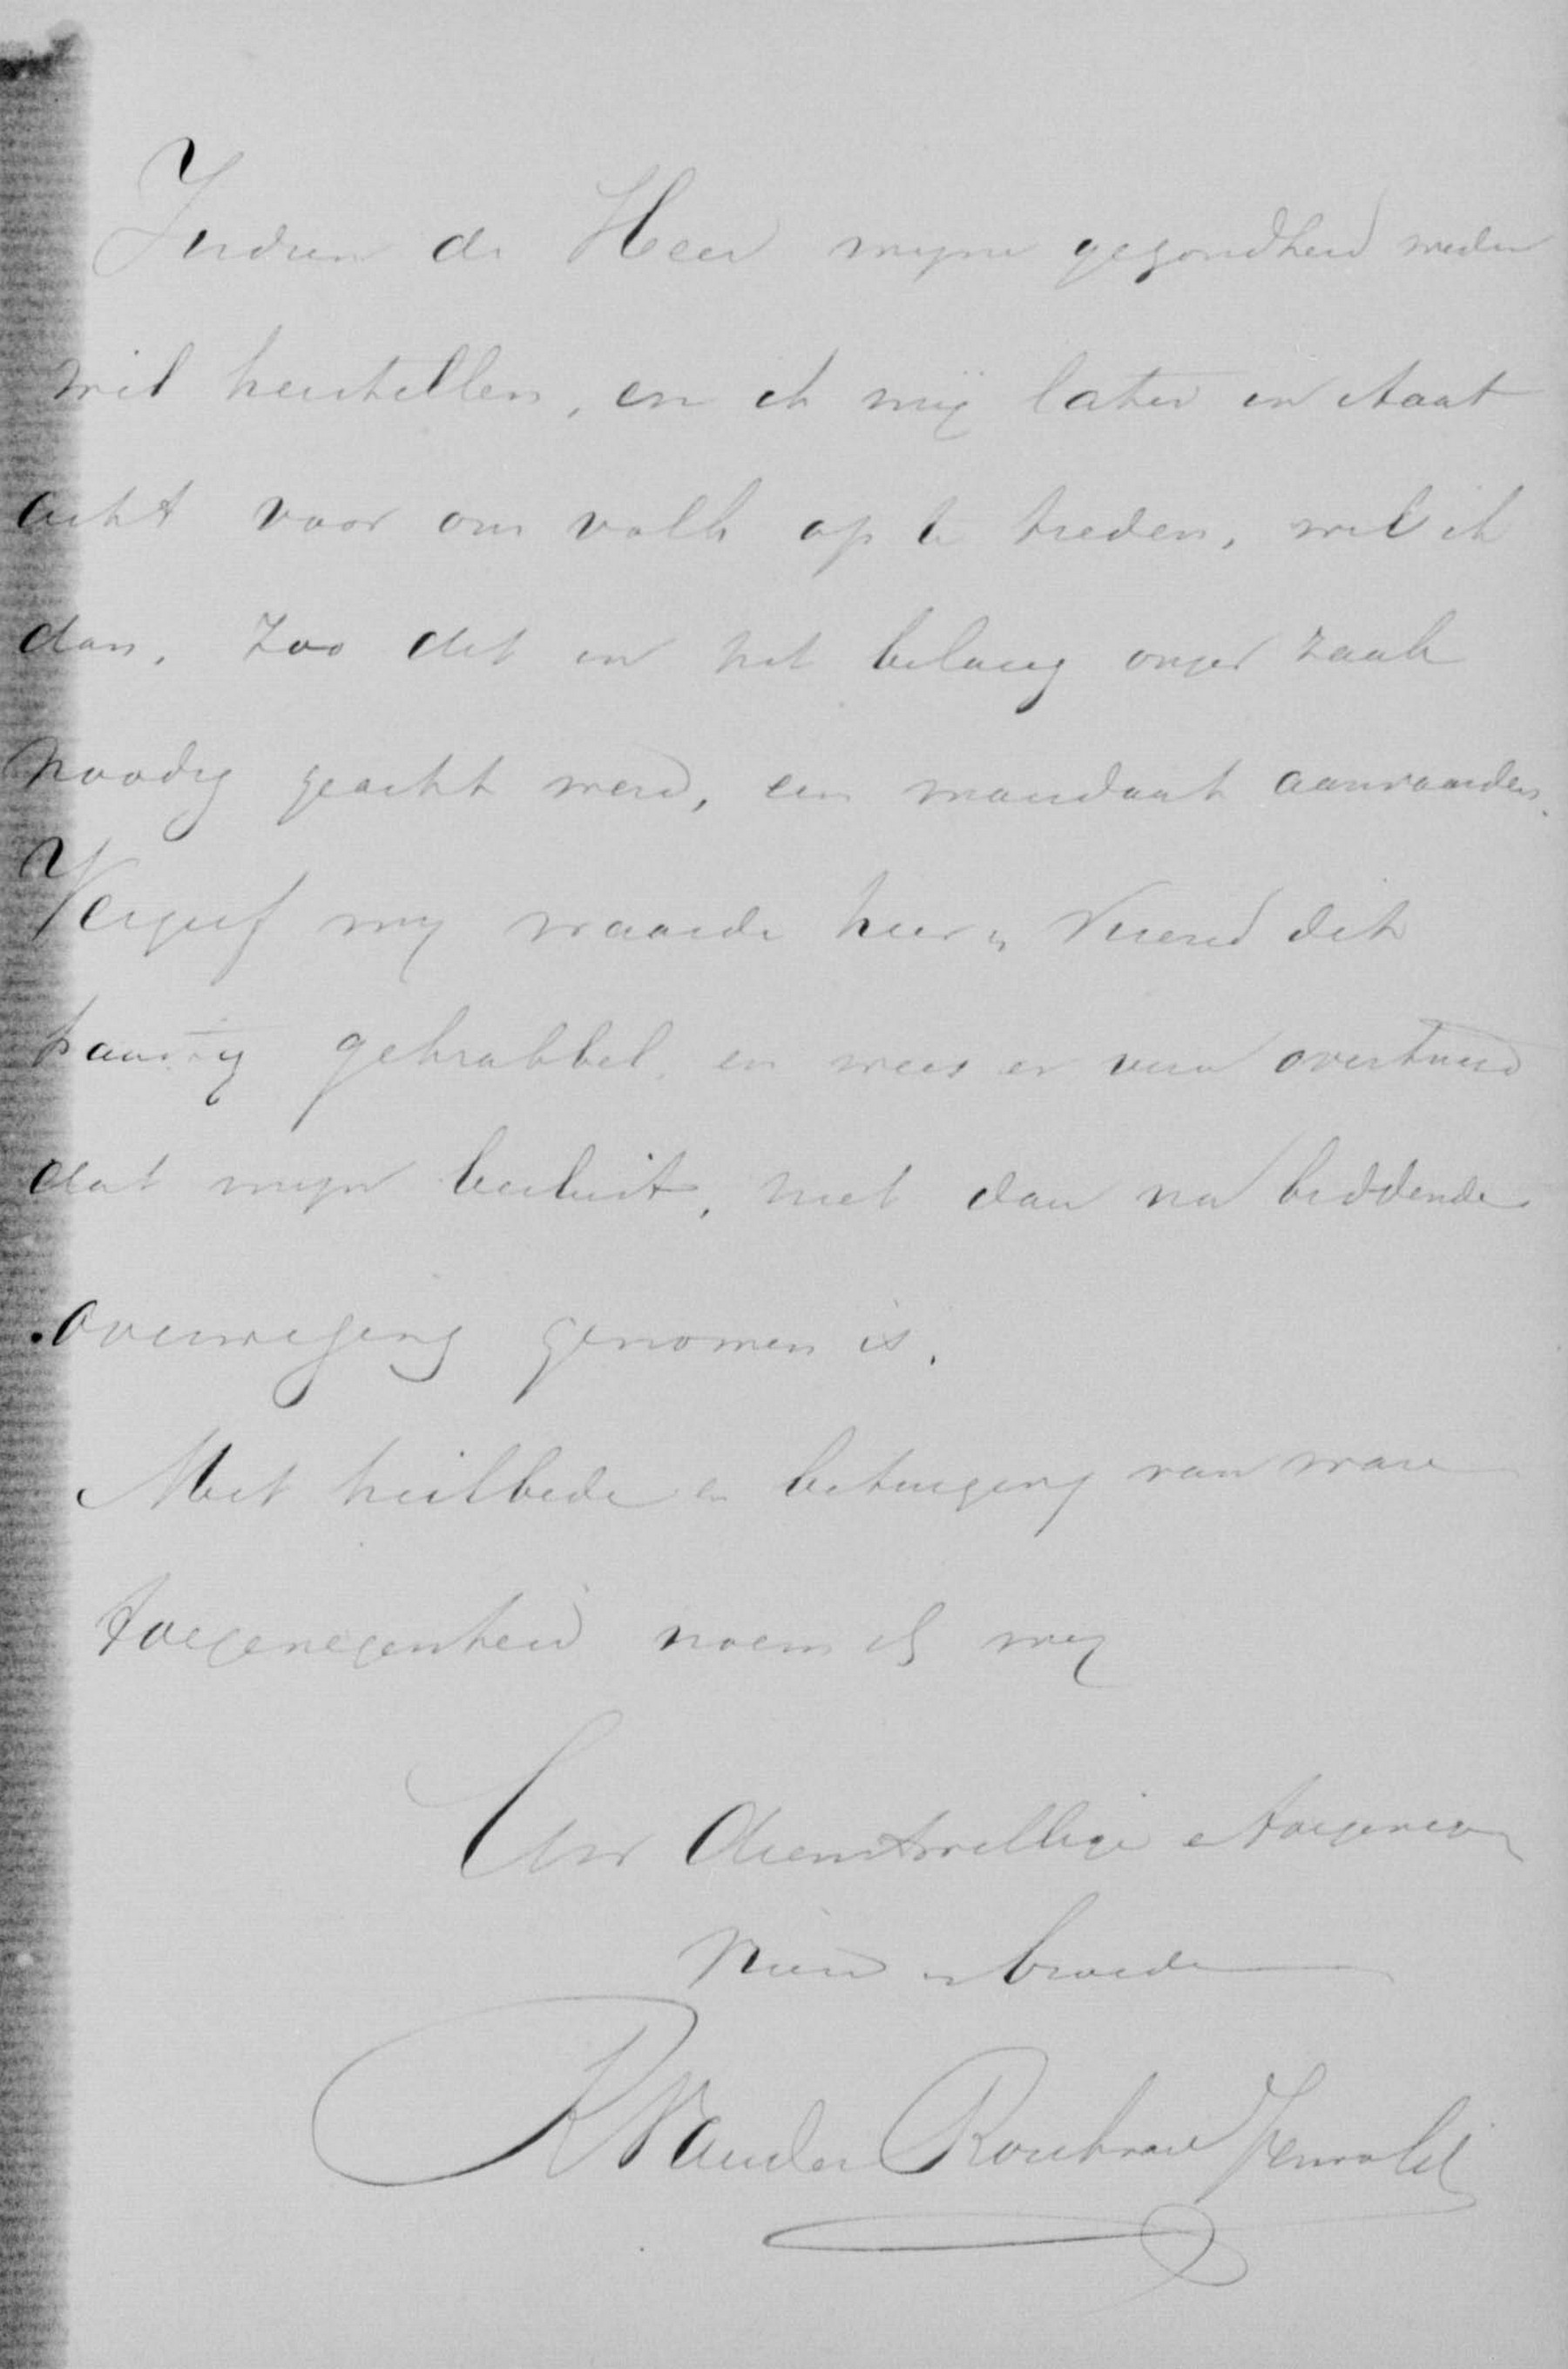 Indien de Heer mijne gezondheid weder
wil herstellen, en ik mij later in staat
acht voor ons volk op te treden, wil ik
dan, zoo dit in het belang onzer zaak
noodig geacht werd, een mandaat aanvaarden.
Vergeef mij waarde heer en vriend dit
haastig gekrabbel, en wees er van overtuigd
dat mijn besluit, niet dan na biddende
overweging genomen is.
Met heilbede en betuiging van ware
toegenegenheid noem ik mij
Uw dienstwillige en toegenegen
vriend en broeder